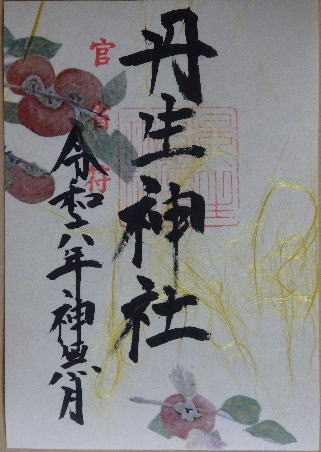 丹生神社
官省符
令和六年神無月